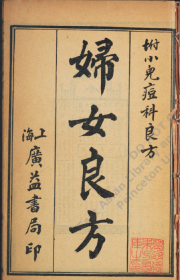 坿小兒痘科良方
婦女良方
上海廣益書局印